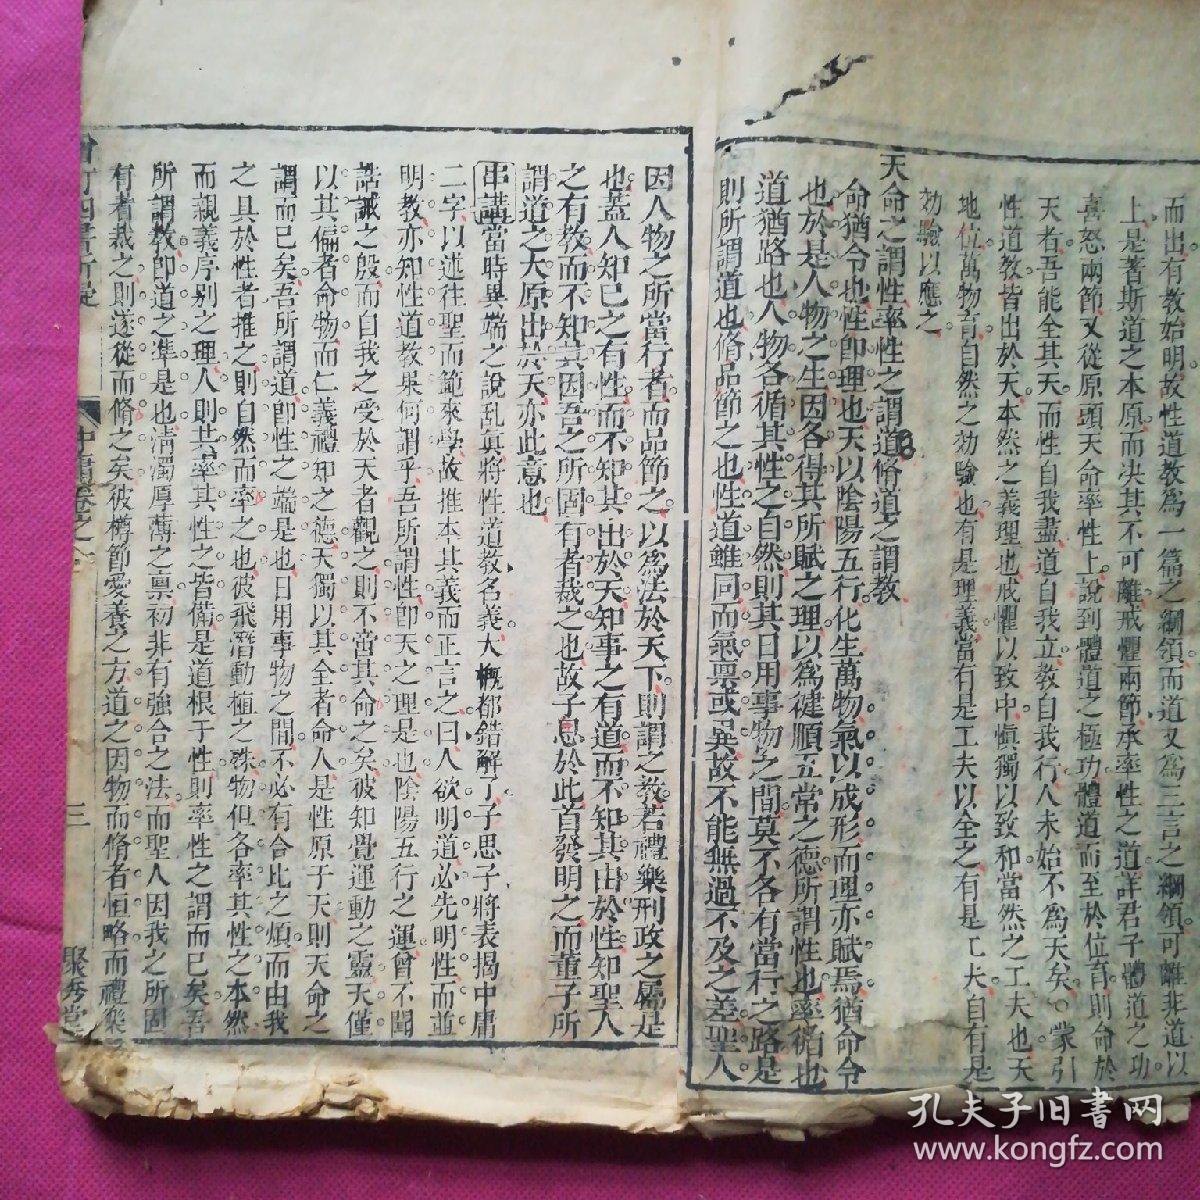 而出有教始明故性道教為一篇之綱領而道又為三言之綱領可離非道以
上是著斯道之本原而決其不可離戒懼兩節承率性之道詳君子體道之功
喜怒兩節又從原頭天命率性上說到體道之極功體道而至於位育則命於
天者吾能全其天而性自我盡道自我立教自我行人未始不為天矣蒙引
性道教皆出於天本然之義理也戒懼以致中慎獨以致和當然之工夫也天
地位萬物育自然之効驗也有是理義當有是工夫以全之有是工夫自有是
効驗以應之
天命之謂性率性之謂道脩道之謂教
命猶令也性即理也天以陰陽五行化生萬物氣以成形而理亦賦焉猶命令
也於是人物之生因各得其所賦之理以為健順五常之德所謂性也率循也
道猶路也人物各循其性之自然則其日用事物之間莫不各有當行之路是
則所謂道也脩品節之也性道雖同而氣稟或異故不能無過不及之差聖人
因人物之所當行者而品節之以為法於天下則謂之教若禮樂刑政之屬是
也蓋人知己之有性而不知其出於天知事之有道而不知其由於性知聖人
之有教而不知其因吾之所固有者裁之也故子思於此首發明之而董子所
謂道之大原出於天亦此意也
串講當時異端之說亂真將性道教名義大概都錯解了子思子將表揭中庸
二字以述往聖而範來學故推本其義而正言之曰人欲明道必先明性而並
明教亦知性道教果何謂乎吾所謂性即天之理是也陰陽五行之運曾不聞
誥誡之殷而自我之受於天者觀之則不當其命之矣彼知覺運動之靈天僅
以其偏者命物而仁義禮知之德天獨以其全者命人是性原于天則天命之
謂而已矣吾所謂道即性之端是也日用事物之間不必有合比之煩而由我
之具於性者推之則自然而率之也彼飛潛動植之殊物但各率其性之本然
而親義序別之理人則其率其性之皆備是道根于性則率性之謂而已矣吾
所謂教即道之準是也清濁厚薄之稟初非有強合之法而聖人因我之所固
有者裁之則遂從而脩之矣彼樽節愛養之方道之因物而脩者恒略而禮樂
中庸卷之
三
聚秀堂
孔夫子旧书网
www.kongfz.com